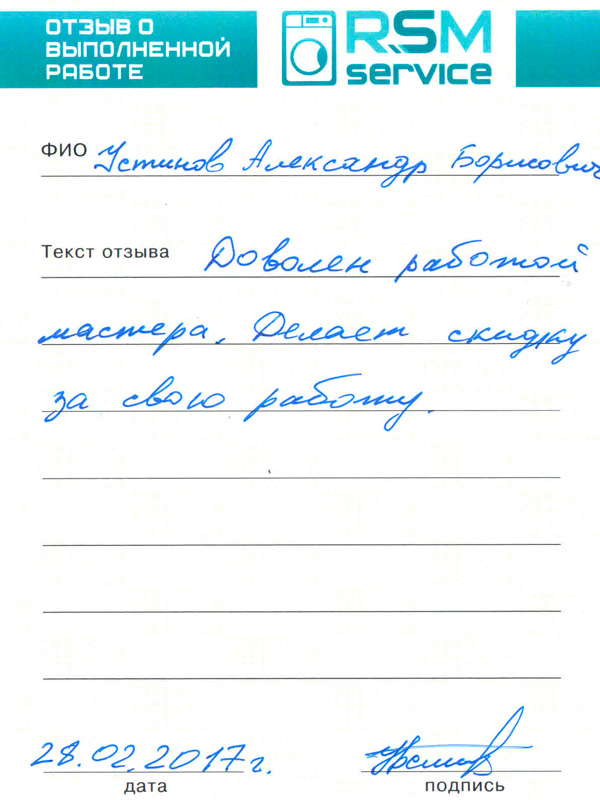 ОТЗЫВ О
ВЫПОЛНЕННОЙ
РАБОТЕ
RSM
service
ФИО Устинов Александр Борисович
Текст отзыва Доволен работой
мастера. Делает скидку
за свою работу.
28.02.2017г.
дата
подпись